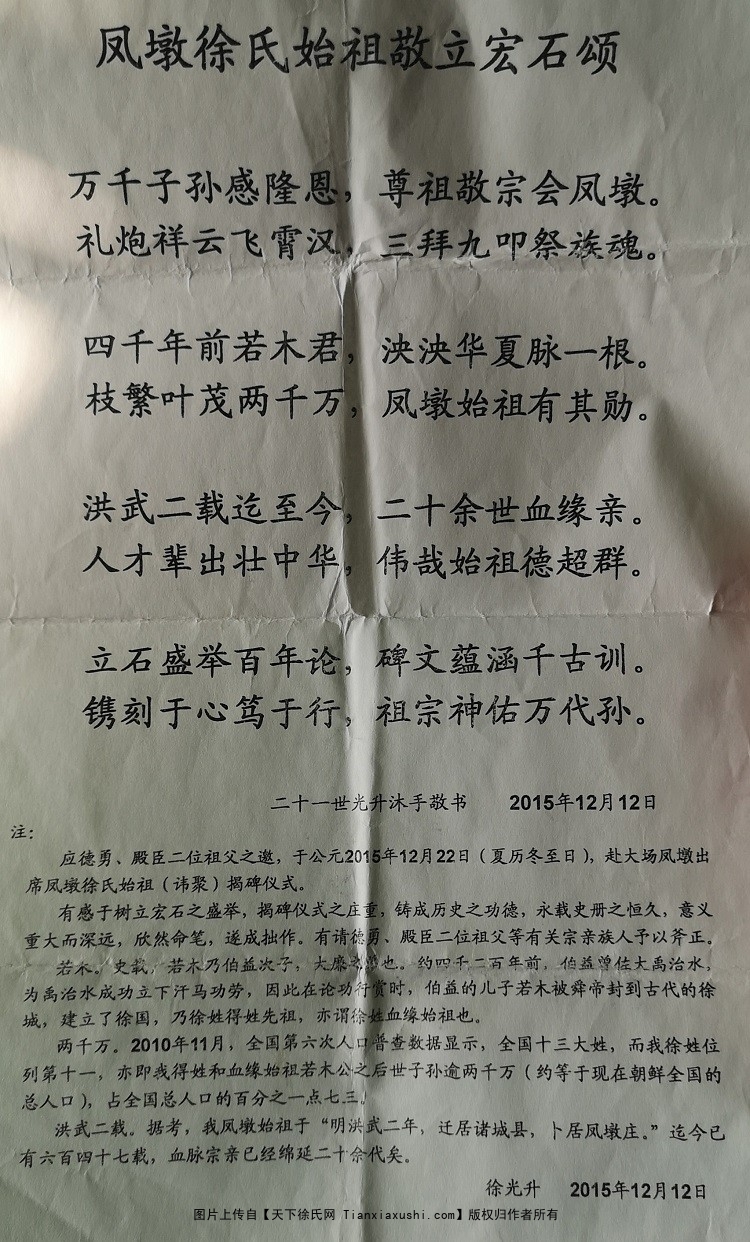 凤墩徐氏始祖敬立宏石颂
万千子孙感隆恩，尊祖敬宗会凤墩。
礼炮祥云飞霄汉，三拜九叩祭族魂。
四千年前若木君，泱泱华夏脉一根。
枝繁叶茂两千万，凤墩始祖有其勋。
洪武二载迄至今，二十余世血缘亲。
人才辈出壮中华，伟哉始祖德超群。
立石盛举百年论，碑文蕴涵千古训。
镌刻于心笃于行，祖宗神佑万代孙。
二十一世光升沐手敬书 2015年12月12日
注：
应德勇、殿臣二位祖父之邀，于公元2015年12月22日（夏历冬至日），赴大场凤墩出
席凤墩徐氏始祖（讳聚）揭碑仪式。
有感于树立宏石之盛举，揭碑仪式之庄重，铸成历史之功德，永载史册之恒久，意义
重大而深远，欣然命笔，遂成拙作。有请德勇、殿臣二位祖父等有关宗亲族人予以斧正。
若木。史载，若木乃伯益次子，大廉之弟也。约四千二百年前，伯益曾佐大禹治水，
为禹治水成功立下汗马功劳，因此在论功行赏时，伯益的儿子若木被舜帝封到古代的徐
城，建立了徐国，乃徐姓得姓先祖，亦谓徐姓血缘始祖也。
两千万。2010年11月，全国第六次人口普查数据显示，全国十三大姓，而我徐姓位
列第十一，亦即我得姓和血缘始祖若木公之后世子孙逾两千万（约等于现在朝鲜全国的
总人口），占全国总人口的百分之一点七三。
洪武二载。据考，我凤墩始祖于“明洪武二年，迁居诸城县，卜居凤墩庄。”迄今已
有六百四十七载，血脉宗亲已经绵延二十余代矣。
徐光升 2015年12月12日
图片上传自【天下徐氏网 Tianxiaxushi.com】版权归作者所有